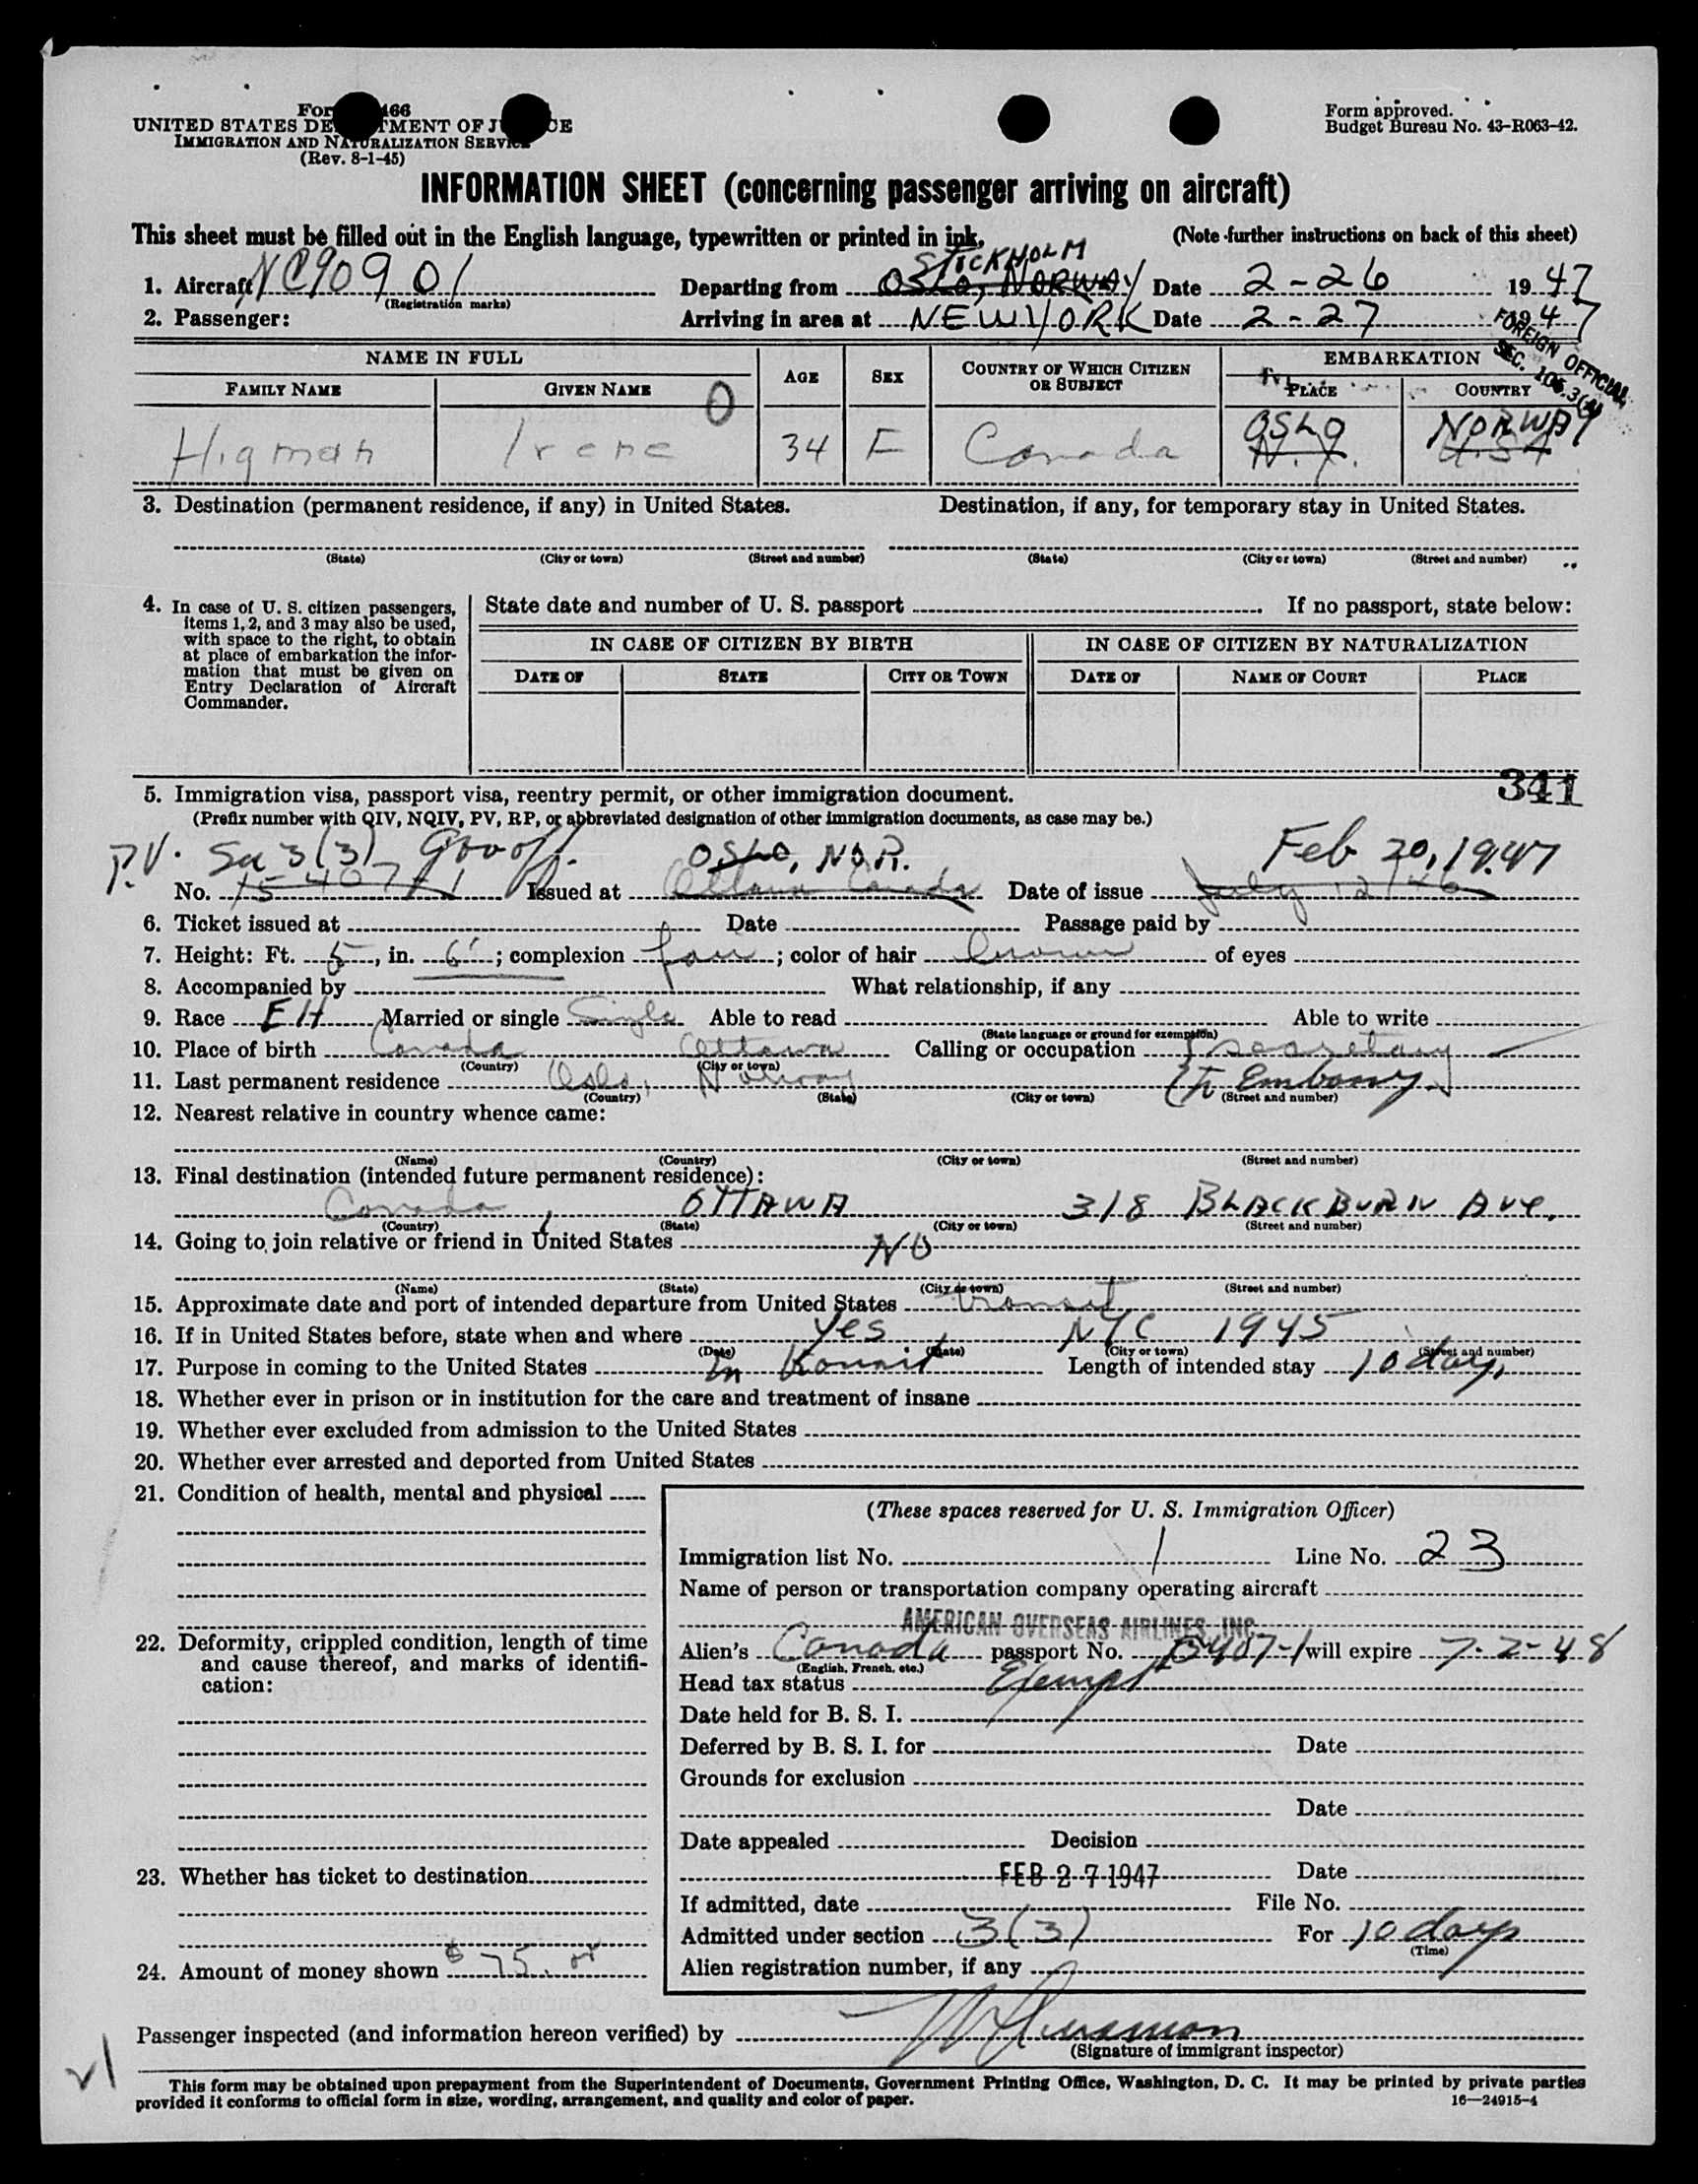 For 466
UNITED STATES DE TMENT OF J CE
IMMIGRATION AND NATURALIZATION SERVICE
(Rev. 8-1-45)
Form approved.
Budget Bureau No. 43-R063-42.
INFORMATION SHEET (concerning passenger arriving on aircraft)
This sheet must be filled out in the English language, typewritten or printed in ink. (Note further instructions on back of this sheet)
STOCKHOLM
1. Aircraft NC90901 Departing from OSLO, NORWAY Date 2-26 1947
(Registration marks)
2. Passenger: Arriving in area at NEW YORK Date 2-27 1947
FOREIGN OFFICIAL
SEC.
NAME IN FULL AGE SEX COUNTRY OF WHICH CITIZEN OR SUBJECT EMBARKATION
FAMILY NAME GIVEN NAME PLACE COUNTRY
O OSLO NORWAY
Higman Irene 34 F Canada N.Y. USA
3. Destination (permanent residence, if any) in United States. Destination, if any, for temporary stay in United States.
(State) (City or town) (Street and number) (State) (City or town) (Street and number)
4. In case of U. S. citizen passengers, items 1, 2, and 3 may also be used, with space to the right, to obtain at place of embarkation the information that must be given on Entry Declaration of Aircraft Commander.
State date and number of U. S. passport If no passport, state below:
IN CASE OF CITIZEN BY BIRTH IN CASE OF CITIZEN BY NATURALIZATION
DATE OF STATE CITY OR TOWN DATE OF NAME OF COURT PLACE
341
5. Immigration visa, passport visa, reentry permit, or other immigration document.
(Prefix number with QIV, NQIV, PV, RP, or abbreviated designation of other immigration documents, as case may be.)
P.V. 3(3) OSLO, NOR. Feb 20, 1947
No. 15407-1 Issued at Ottawa Canada Date of issue July 12/46
6. Ticket issued at Date Passage paid by
7. Height: Ft. 5, in. 6; complexion fair; color of hair brown of eyes
8. Accompanied by What relationship, if any
9. Race EH Married or single Single Able to read Able to write
(State language or ground for exemption)
10. Place of birth Canada Ottawa Calling or occupation secretary
(Country) (City or town)
11. Last permanent residence Oslo, Norway to Embassy
(Country) (State) (City or town) (Street and number)
12. Nearest relative in country whence came:
(Name) (Country) (City or town) (Street and number)
13. Final destination (intended future permanent residence):
Canada, OTTAWA 318 BLACKBURN Ave.
(Country) (State) (City or town) (Street and number)
14. Going to join relative or friend in United States NO
(Name) (State) (City or town) (Street and number)
15. Approximate date and port of intended departure from United States transit
16. If in United States before, state when and where Yes, NYC 1945
(Date) (State) (City or town) (Street and number)
17. Purpose in coming to the United States In Length of intended stay 10 days
18. Whether ever in prison or in institution for the care and treatment of insane
19. Whether ever excluded from admission to the United States
20. Whether ever arrested and deported from United States
21. Condition of health, mental and physical
(These spaces reserved for U. S. Immigration Officer)
Immigration list No. 1 Line No. 23
Name of person or transportation company operating aircraft
AMERICAN OVERSEAS AIRLINES, INC.
22. Deformity, crippled condition, length of time and cause thereof, and marks of identification:
Alien's Canada passport No. 15407-1 will expire 7-2-48
(English, French, etc.)
Head tax status Exempt
Date held for B. S. I.
Deferred by B. S. I. for Date
Grounds for exclusion
Date
Date appealed Decision
23. Whether has ticket to destination
FEB 27 1947 Date
If admitted, date File No.
Admitted under section 3(3) For 10 days
(Time)
24. Amount of money shown $75.00
Alien registration number, if any
Passenger inspected (and information hereon verified) by
(Signature of immigrant inspector)
This form may be obtained upon prepayment from the Superintendent of Documents, Government Printing Office, Washington, D. C. It may be printed by private parties
provided it conforms to official form in size, wording, arrangement, and quality and color of paper. 16—24915-4